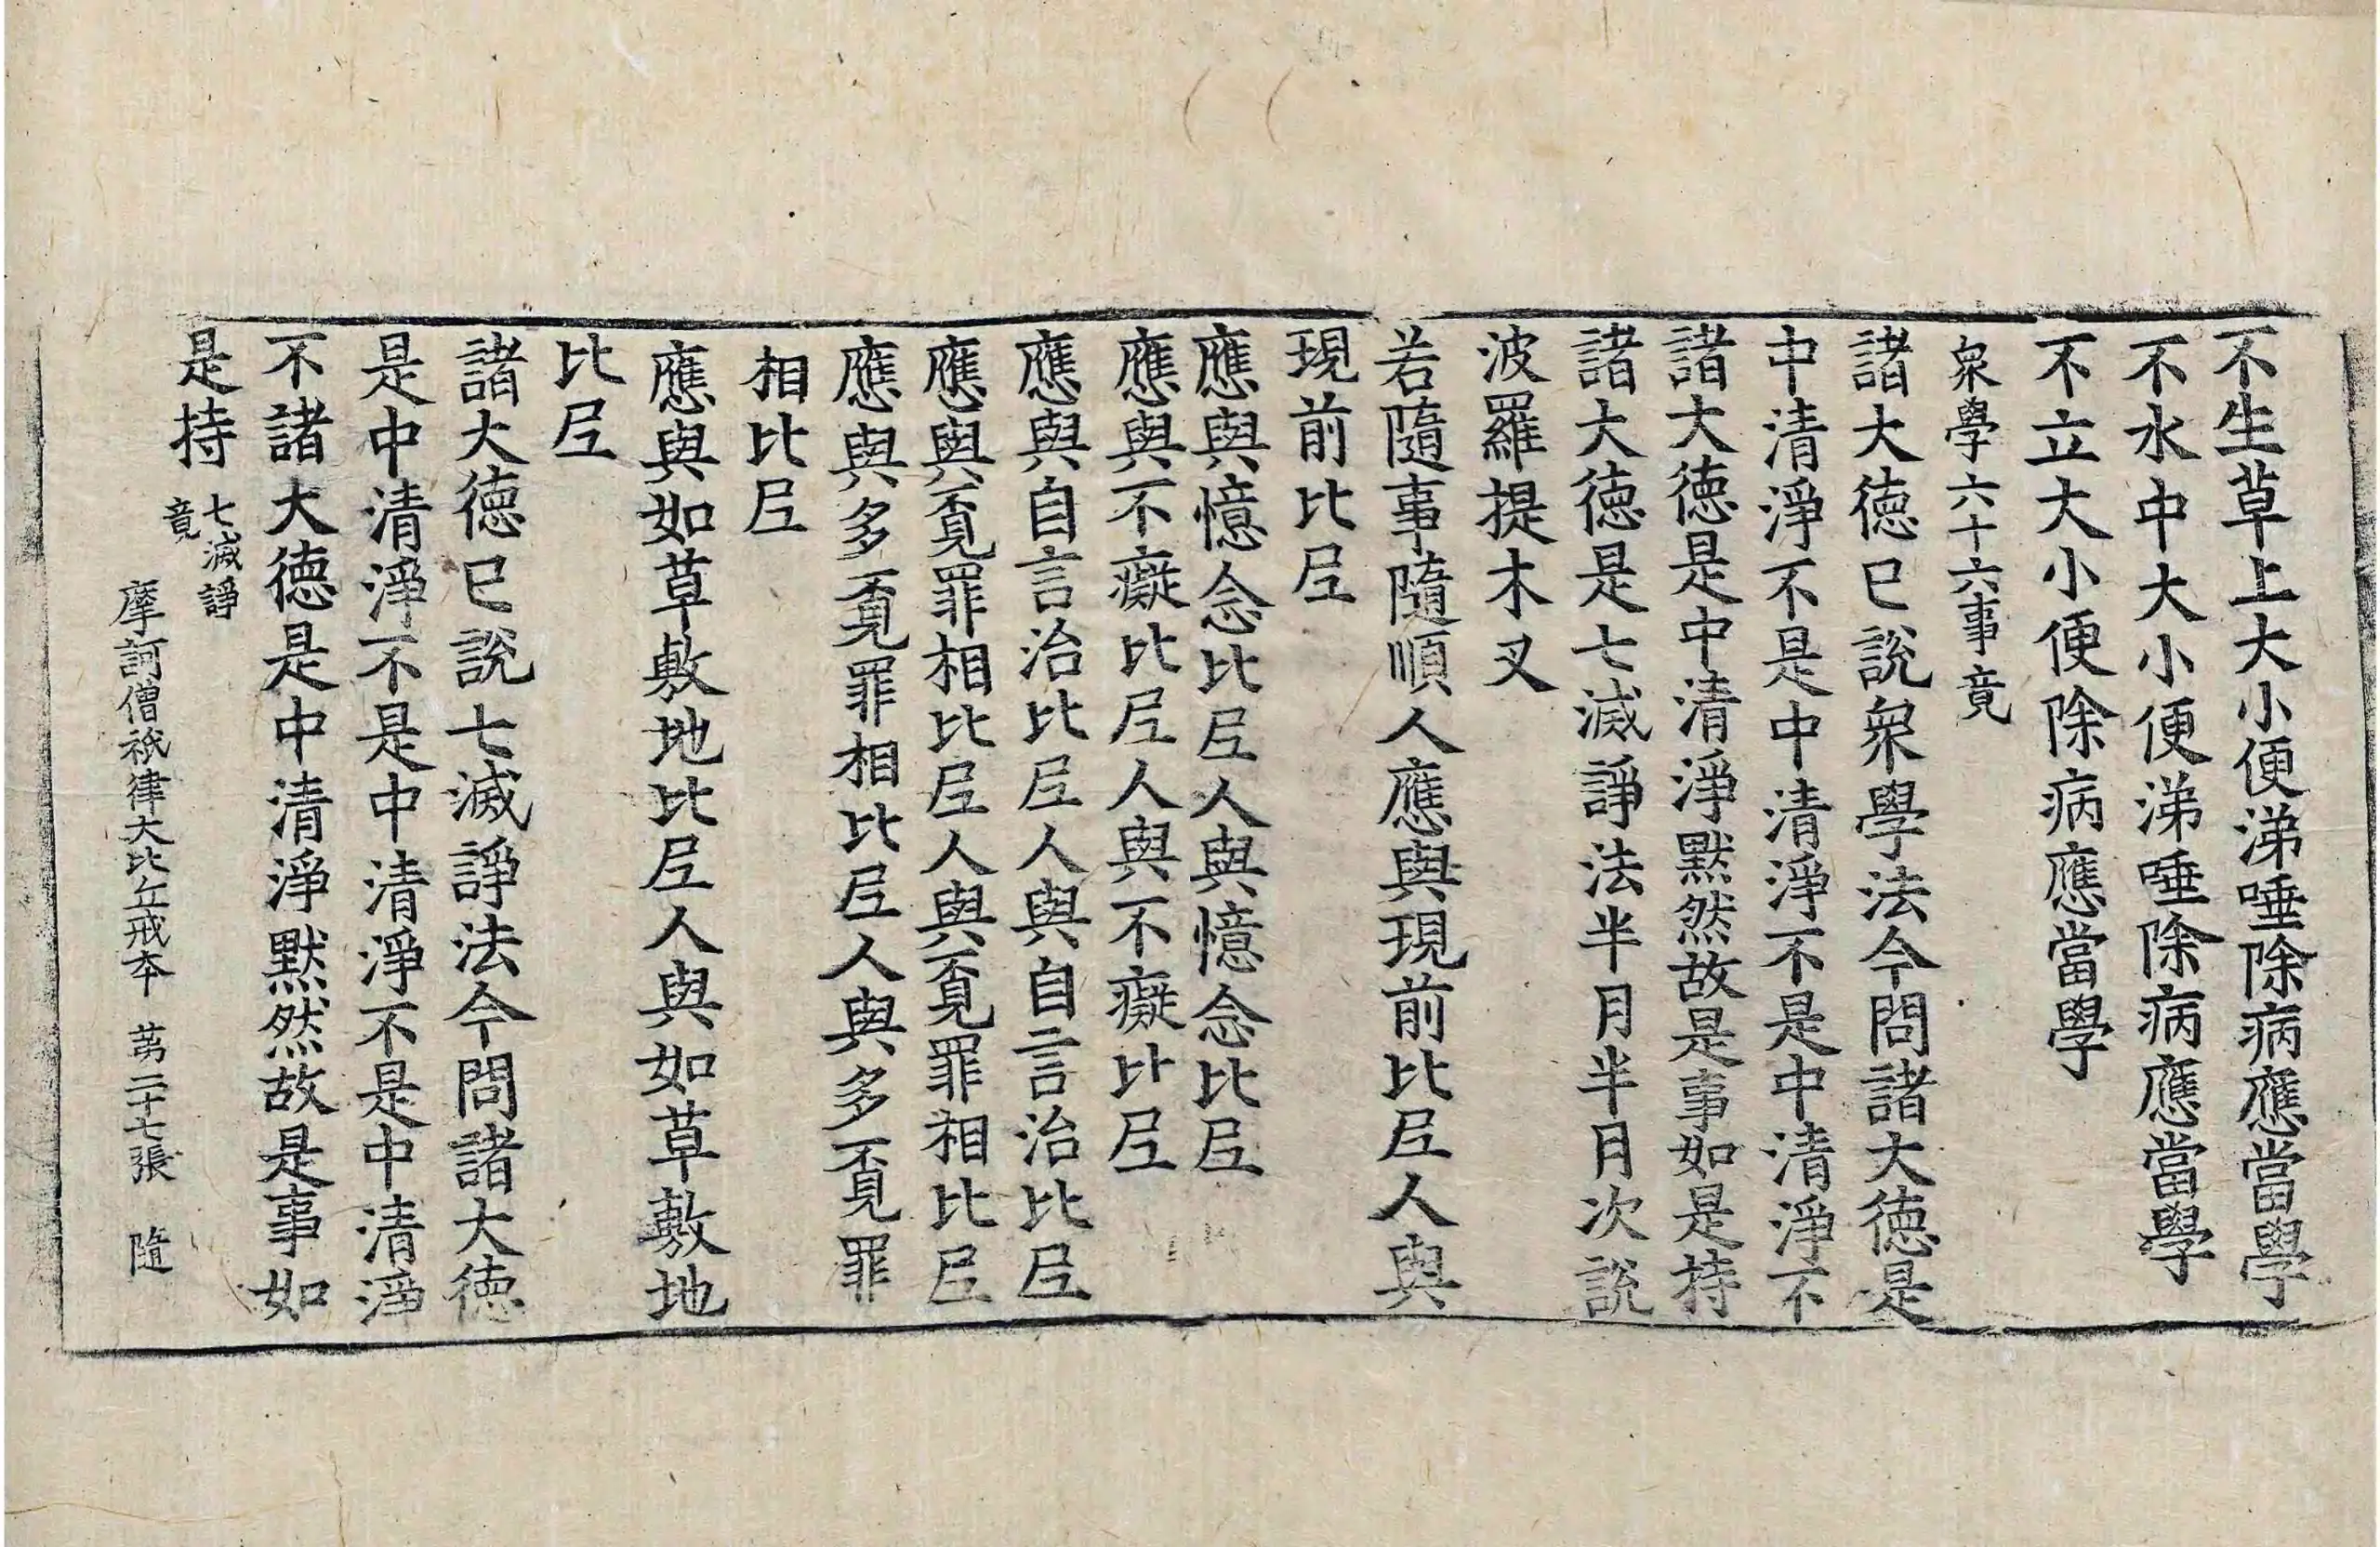 不生草上大小便涕唾除病應當學
不水中大小便涕唾除病應當學
不立大小便除病應當學
衆學六十六事竟
諸大德已說衆學法今問諸大德是
中清淨不是中清淨不是中清淨不
諸大德是中清淨默然故是事如是持
諸大德是七滅諍法半月半月次說
波羅提木叉
若隨事隨順人應與現前比𡰱人與
現前比𡰱
應與憶念比𡰱人與憶念比𡰱
應與不癡比𡰱人與不癡比𡰱
應與自言治比𡰱人與自言治比𡰱
應與覓罪相比𡰱人與覓罪相比𡰱
應與多覓罪相比𡰱人與多覓罪
相比𡰱
應與如草敷地比𡰱人與如草敷地
比𡰱
諸大德已說七滅諍法今問諸大德
是中清淨不是中清淨不是中清淨
不諸大德是中清淨默然故是事如
是持 七滅諍
竟
摩訶僧祇律大比丘戒本 苐二十七張 隨